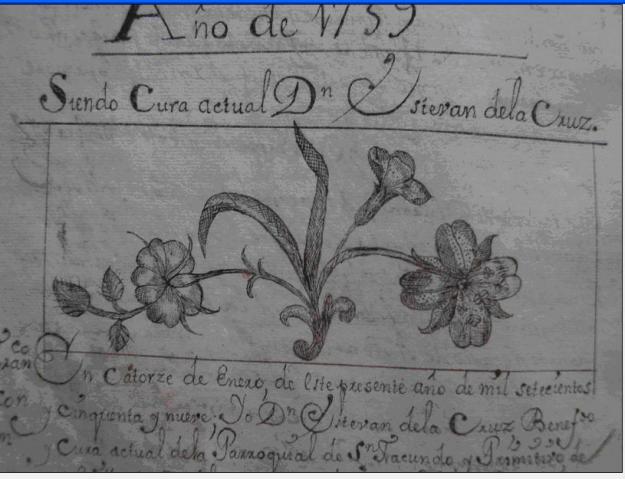 Año de 1759
Siendo Cura actual Dn Estevan dela Cruz.
En Catorze de Enero, de este presente año de mil setecientos
y cinquenta y nueve; Yo Dn Estevan dela Cruz Benefdo
y Cura actual dela Parroquial de Sn Facundo y Primitivo de